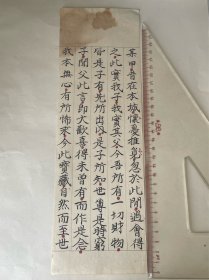 某甲昔在本城懷憂推覓忽於此間遇會得
之此實我子我實其父今吾所有一切財物
皆是子有先所出內是子所知世尊是時窮
子聞父此言即大歡喜得未曾有而作是念
我本無心有所悕求今此寶藏自然而至世